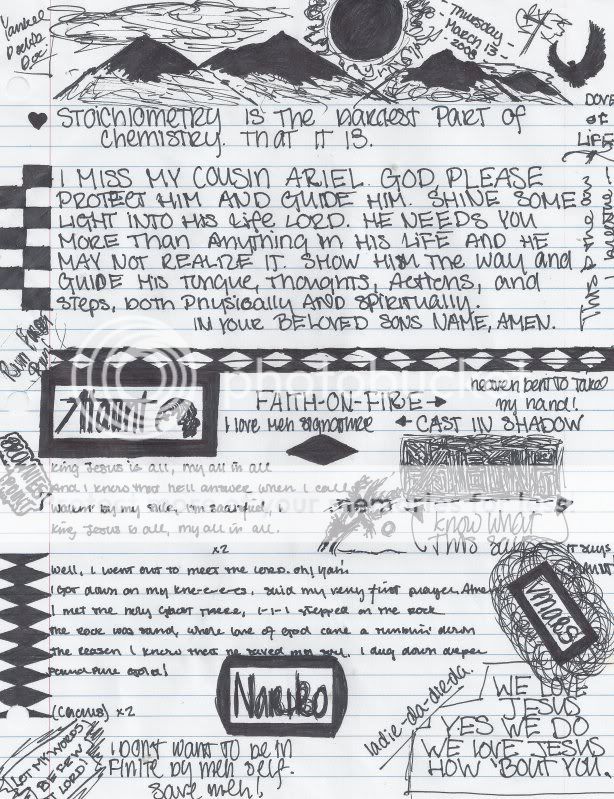 Yankee
Doodle
- Thursday -
March 13 -
2008
DOVE
OF
LIFE
STOICHIOMETRY IS THE HARDEST PART OF
CHEMISTRY. THAT IT IS.
I MISS MY COUSIN ARIEL. GOD, PLEASE
PROTECT HIM AND GUIDE HIM. SHINE SOME
LIGHT INTO HIS Life LORD. HE NEEDS YOU
MORE THAN ANYTHING IN HIS LIFE AND HE
MAY NOT REALIZE IT. SHOW HIM THE WAY and
GUIDE HIS TONGUE, THOUGHTS, ACTIONS, and
STEPS, both PHYSICALLY AND SPIRITUALLY.
IN YOUR BELOVED SONS NAME, AMEN.
photobucket
FAITH-ON-FIRE
HEAVEN BENT TO TAKE
my hand!
I love meh signature
CAST IN SHADOW
King Jesus is all, my all in all
And I know that he'll answer when I call
Walkin' by my side, I'm satisfied,
King Jesus is all, my all in all.
x2
I KNOW WHAT
THIS SAYS
IT SAYS
Well, I went out to meet the Lord. oh! Yah!
I got down on my kne-e-e-es, said my very first prayer. Amen
I met the Holy Ghost there, I-I-I stepped on the rock
The rock was sand, where love of God came a runnin' down
The reason I know that he saved my soul, I dug down deeper
found pure gold!
(Chorus) x2
Nariko
ladie-da-die-da.
WE LOVE
JESUS
YES WE DO
WE LOVE JESUS
HOW 'BOUT YOU.
LET MY WORDS
BE FEW
LORD!
I DON'T WANT TO be in
FINITE by meh self.
save meh!